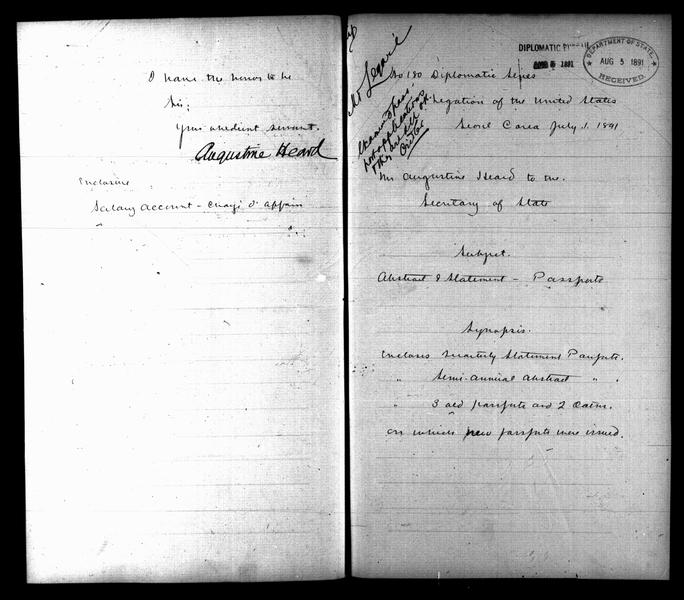 I have the honor to be
Sir:
Your obedient servant.
Augustine Heard
Enclosure
Salary account - Chargé d'affairs
DIPLOMATIC
1891
DEPARTMENT OF STATE
AUG 5 1891
RECEIVED
No 180 Diplomatic Series
Legation of the United States
Seoul Corea July 1. 1891
Mr Augustine Heard to the
Secretary of State
Subject.
Abstract & Statement - Passports
Synopsis.
Encloses Quarterly Statement Passports.
" Semi-Annual Abstract " .
" 3 old passports and 2
on which new passports were issued.